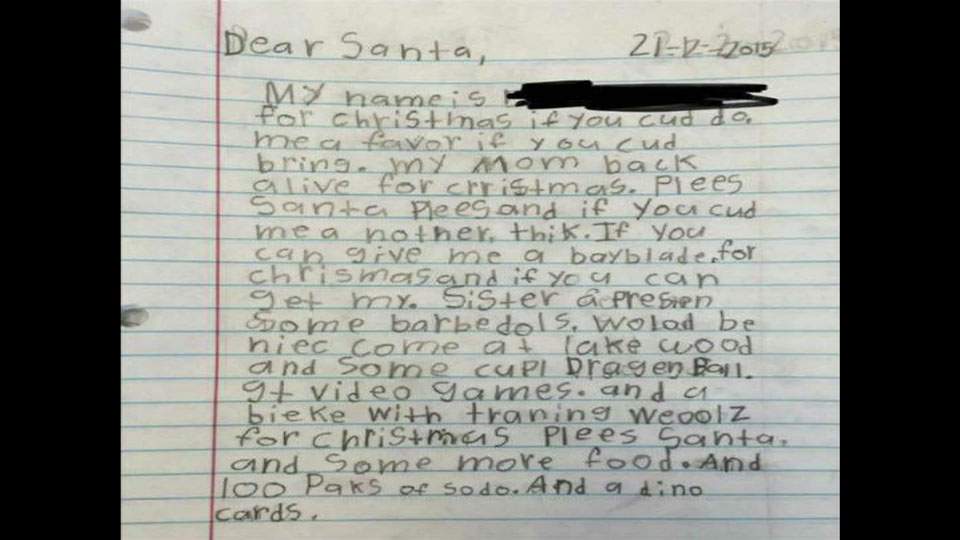 Dear Santa, 21-12-2015
My name is
for christmas if you cud do.
me a favor if you cud
bring. my mom back
alive for crristmas. Plees
Santa Pleesand if you cud
me a nother. thik. If you
can give me a bayblade. for
chrismasand if you can
get my. Sister a Presten
Some barbedols. Wolad be
niec come at lake wood
and Some cupl Dragen Ball.
gt video games. and a
bieke with traning weoolz
for christmas Plees Santa.
and Some more food. And
100 Paks of sodo. And a dino
cards.